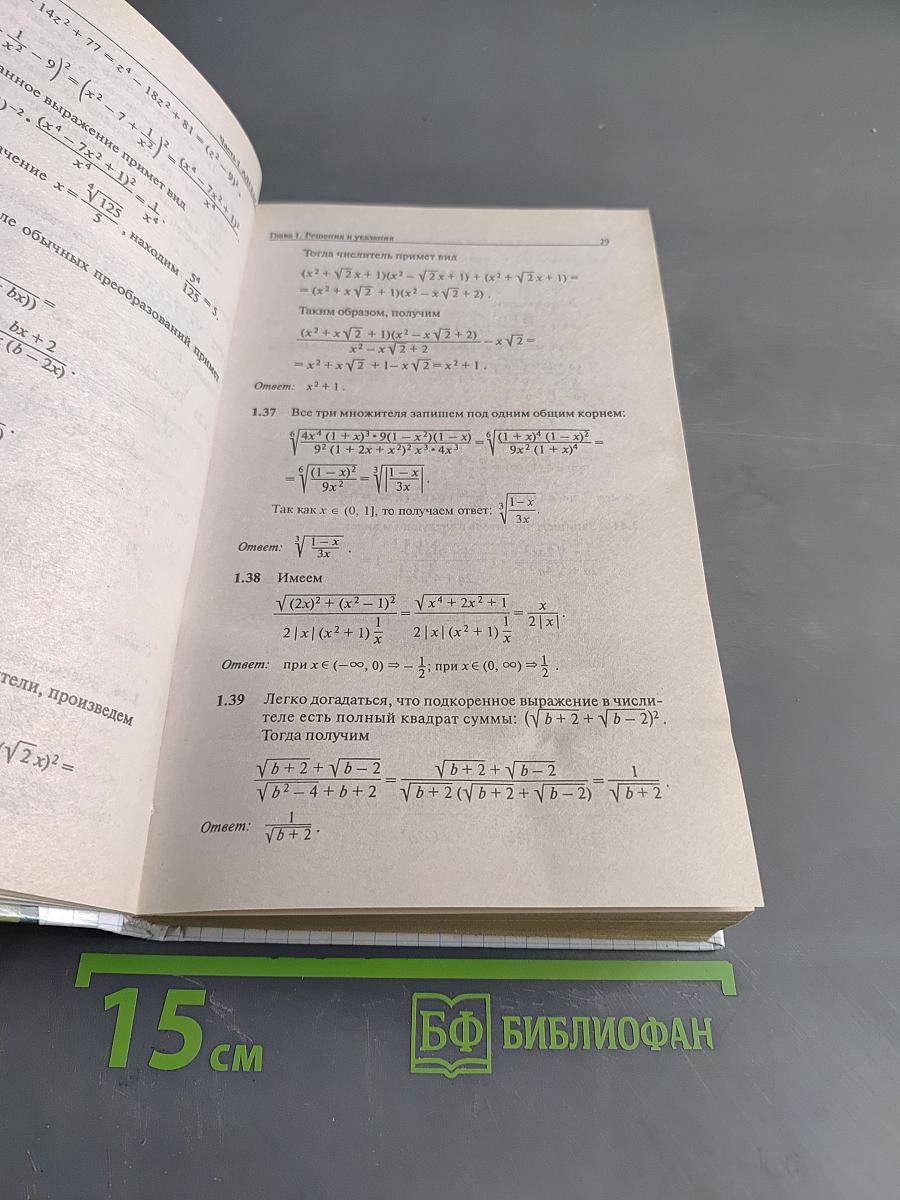 14z² + 77 = z⁴ − 18z² + 81 = (z² − 9)²,
1/x² − 9)² = (x² − 7 + 1/x²)² = (x⁴ − 7x² + 1)²/x⁴
выражение примет вид
)⁻² · (x⁴ − 7x² + 1)²/x⁴ = 1/x⁴.
x = ⁴√125/5, находим 5⁴/125 = 5.
обычных преобразований примет
bx)) =
bx + 2
(b − 2x).
произведем
√2x)² =
Глава 1. Решения и указания 29
Тогда числитель примет вид
(x² + √2x + 1)(x² − √2x + 1) + (x² + √2x + 1) =
= (x² + x√2 + 1)(x² − x√2 + 2).
Таким образом, получим
(x² + x√2 + 1)(x² − x√2 + 2)/(x² − x√2 + 2) − x√2 =
= x² + x√2 + 1 − x√2 = x² + 1.
Ответ: x² + 1.
1.37 Все три множителя запишем под одним общим корнем:
⁶√(4x⁴ (1 + x)³ · 9(1 − x²)(1 − x)/(9² (1 + 2x + x²)² x³ · 4x³)) = ⁶√((1 + x)⁴ (1 − x)²/(9x² (1 + x)⁴)) =
= ⁶√((1 − x)²/9x²) = ³√|(1 − x)/3x|.
Так как x ∈ (0, 1], то получаем ответ: ³√((1 − x)/3x).
Ответ: ³√((1 − x)/3x).
1.38 Имеем
√((2x)² + (x² − 1)²)/(2|x|(x² + 1)1/x) = √(x⁴ + 2x² + 1)/(2|x|(x² + 1)1/x) = x/2|x|.
Ответ: при x ∈ (−∞, 0) ⇒ −1/2; при x ∈ (0, ∞) ⇒ 1/2.
1.39 Легко догадаться, что подкоренное выражение в числи-
теле есть полный квадрат суммы: (√(b + 2) + √(b − 2))².
Тогда получим
(√(b + 2) + √(b − 2))/(√(b² − 4) + b + 2) = (√(b + 2) + √(b − 2))/(√(b + 2)(√(b + 2) + √(b − 2))) = 1/√(b + 2).
Ответ: 1/√(b + 2).
15 см
БФ БИБЛИОФАН